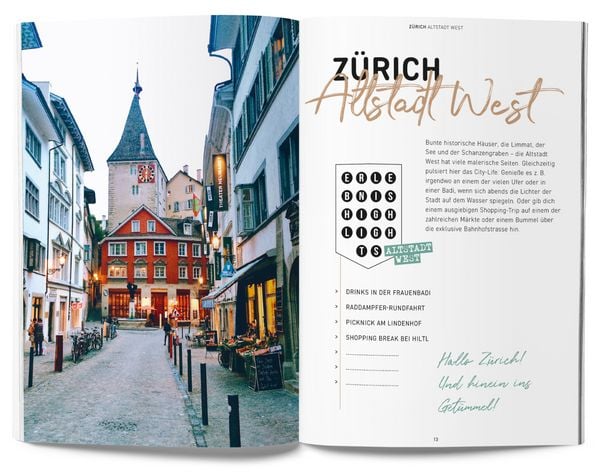 THEATER NEUMARKT
ZÜRICH ALTSTADT WEST
ZÜRICH
Altstadt West
Bunte historische Häuser, die Limmat, der
See und der Schanzengraben – die Altstadt
West hat viele malerische Seiten. Gleichzeitig
pulsiert hier das City-Life. Genieße es z. B.
irgendwo an einem der vielen Ufer oder in
einer Badi, wenn sich abends die Lichter der
Stadt auf dem Wasser spiegeln. Oder gib dich
einem ausgiebigen Shopping-Trip auf einem der
zahlreichen Märkte oder einem Bummel über
die exklusive Bahnhofstrasse hin.
ERLE
BNIS
HIGH
LIGH
TS
ALTSTADT
WEST
> DRINKS IN DER FRAUENBADI
> RADDAMPFER-RUNDFAHRT
> PICKNICK AM LINDENHOF
> SHOPPING BREAK BEI HILTL
>
>
>
Hallo Zürich!
Und hinein ins
Getümmel!
13